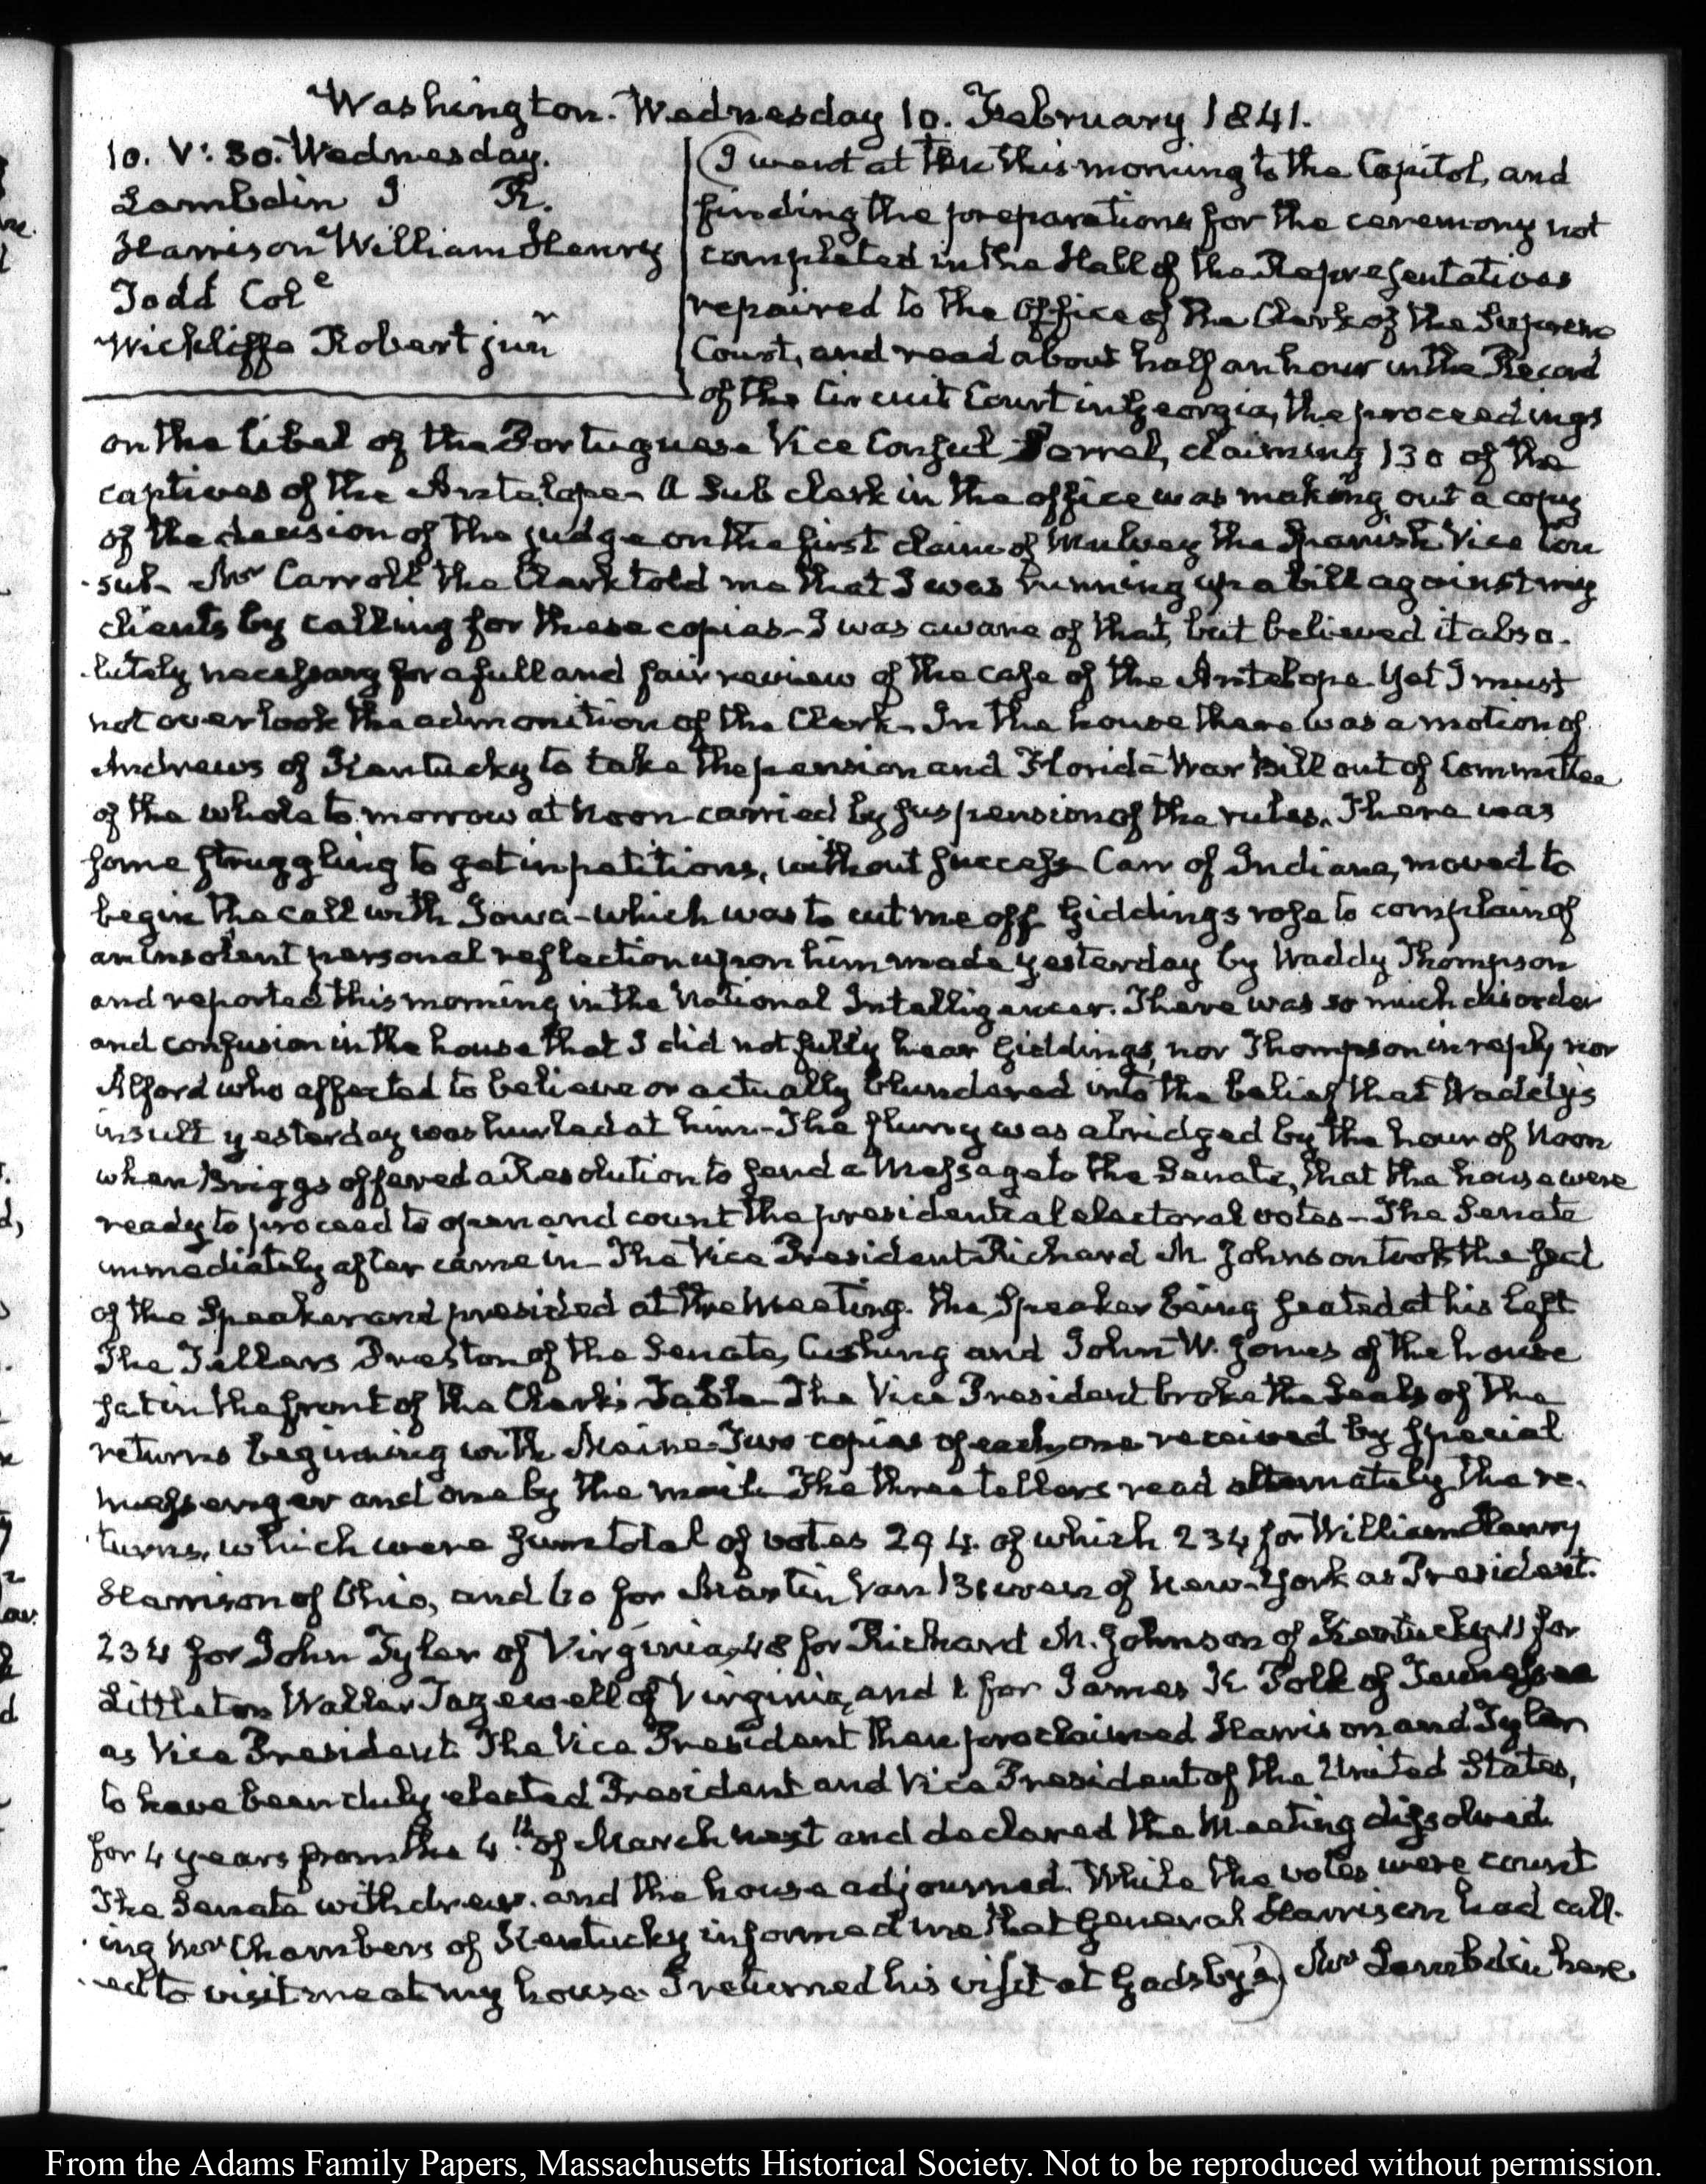 Washington. Wednesday 10. February 1841.
10. V: 30. Wednesday.
Lambdin J R.
Harrison William Henry
Todd Col.e
Wickliffe Robert junr
(I went at ten this morning to the Capitol, and
finding the preparations for the ceremony not
completed in the Hall of the Representatives
repaired to the Office of the Clerk of the Supreme
Court, and read about half an hour in the Record
of the Circuit Court in Georgia, the proceedings
on the libel of the Portuguese Vice Consul Sorrel, claiming 130 of the
captives of the Antelope- A Sub clerk in the office was making out a copy
of the decision of the judge on the first claim of Mulvey the Spanish Vice Con
-sul- Mr Carroll the Clerk told me that I was running up a bill against my
clients by calling for these copies- I was aware of that, but believed it abso-
-lutely necessary for a full and fair review of the case of the Antelope. Yet I must
not overlook the admonition of the Clerk- In the house there was a motion of
Andrews of Kentucky to take the pension and Florida War Bill out of Committee
of the whole to morrow at Noon- carried by suspension of the rules. There was
some struggling to get in petitions, without success- Carr of Indiana, moved to
begin the call with Iowa- which was to cut me off. Giddings rose to complain of
an insolent personal reflection upon him made yesterday by Waddy Thompson
and reported this morning in the National Intelligencer. There was so much disorder
and confusion in the house that I did not fully hear Giddings, nor Thompson in reply nor
Alford who affected to believe or actually blundered into the belief that Waddy's
insult yesterday was hurled at him- The flurry was abridged by the hour of Noon
when Briggs offered a Resolution to send a Message to the Senate, that the house were
ready to proceed to open and count the presidential electoral votes- The Senate
immediately after came in- The Vice President Richard M Johnson took the seat
of the Speaker and presided at the Meeting. the Speaker being seated at his left
The Tellers Preston of the Senate, Cushing and John W. Jones of the house
sat in the front of the Clerk's Table- The Vice President broke the Seals of the
returns beginning with Maine- Two copies of each, one received by special
messenger and one by the mail. The three tellers read alternately the re-
-turns, which were sum total of votes 294. of which 234 for William Henry
Harrison of Ohio, and 60 for Martin Van Buren of New-York as President.
234 for John Tyler of Virginia, 48 for Richard M. Johnson of Kentucky 11 for
Littleton Waller Tazewell of Virginia, and 1 for James K Polk of Tennessee
as Vice President. The Vice President then proclaimed Harrison and Tyler
to have been duly elected President and Vice President of the United States,
for 4 years from the 4th of March next and declared the Meeting dissolved.
The Senate withdrew. and the house adjourned. While the votes were count
-ing Mr Chambers of Kentucky informed me that General Harrison had call-
-ed to visit me at my house. I returned his visit at Gadsby's) Mr Lambdin here
From the Adams Family Papers, Massachusetts Historical Society. Not to be reproduced without permission.